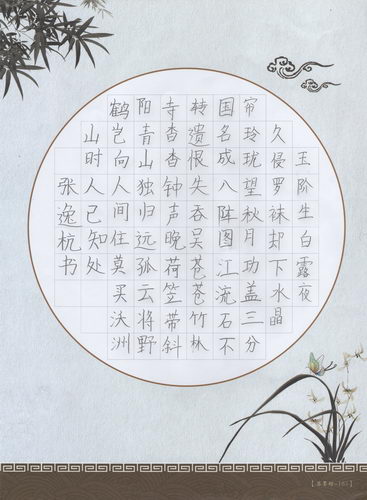 玉阶生白露夜
久侵罗袜却下水晶
帘玲珑望秋月功盖三分
国名成八阵图江流石不
转遗恨失吞吴苍苍竹林
寺杳杳钟声晚荷笠带斜
阳青山独归远孤云将野
鹤岂向人间住莫买沃洲
山时人已知处
张逸杭书